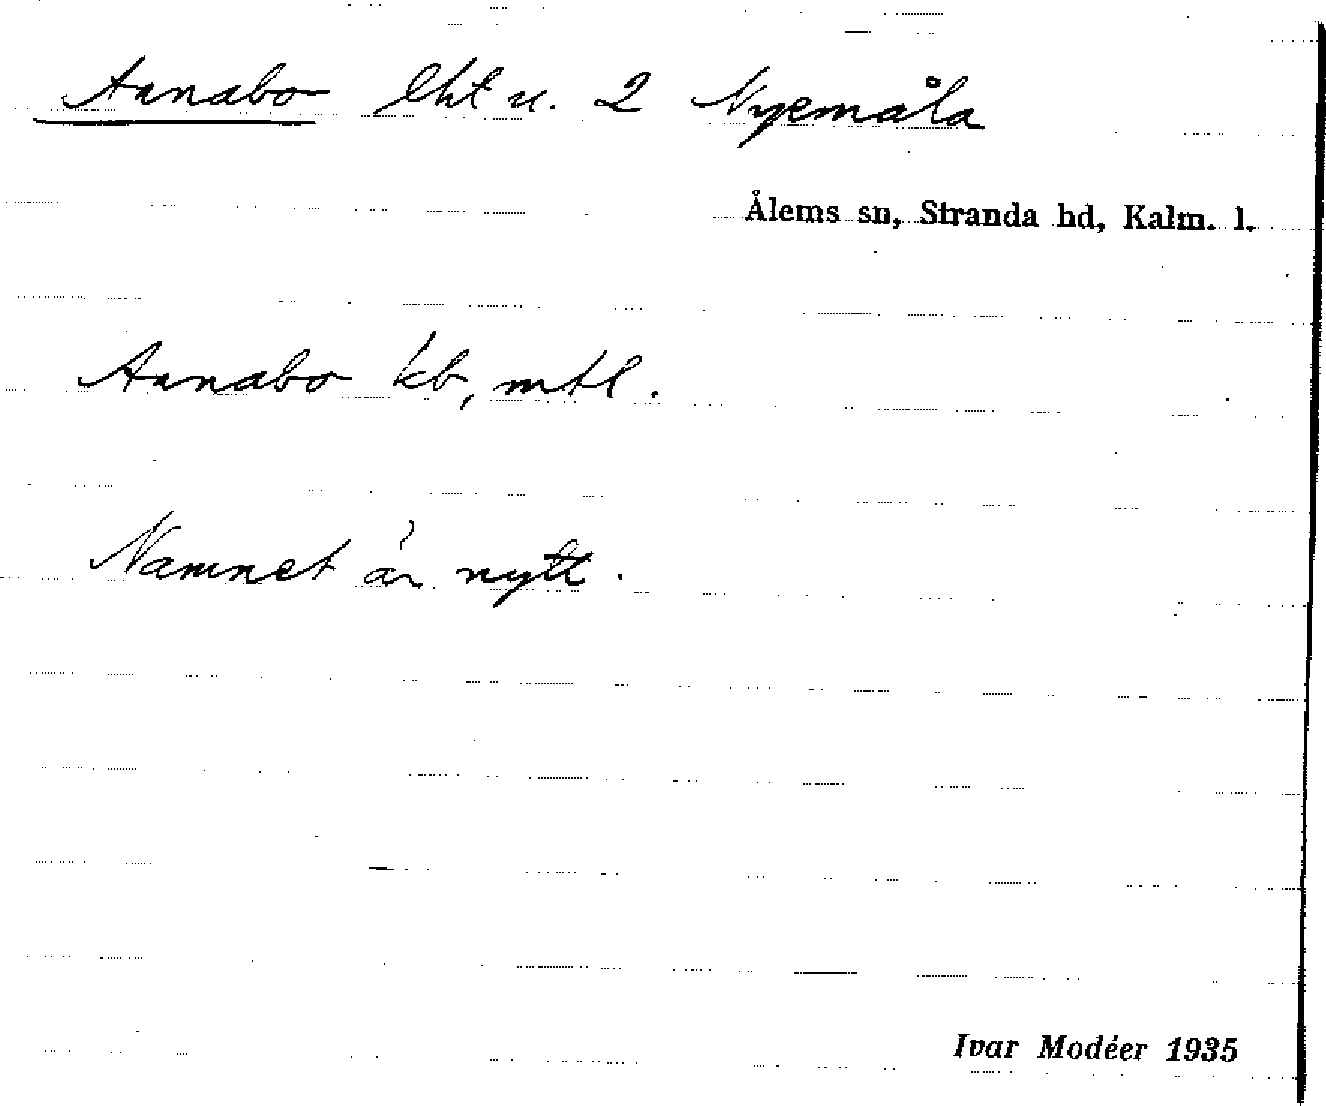 Annabo lht u. 2 Nyemåla
Ålems sn, Stranda hd, Kalm. l.
Annabo kb, mtl.
Namnet är nytt.
Ivar Modéer 1935